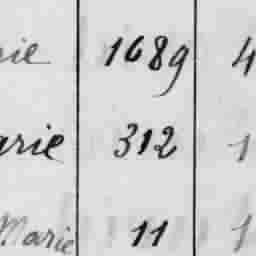 rie 1689 4
arie 312 1
Marie 11 1